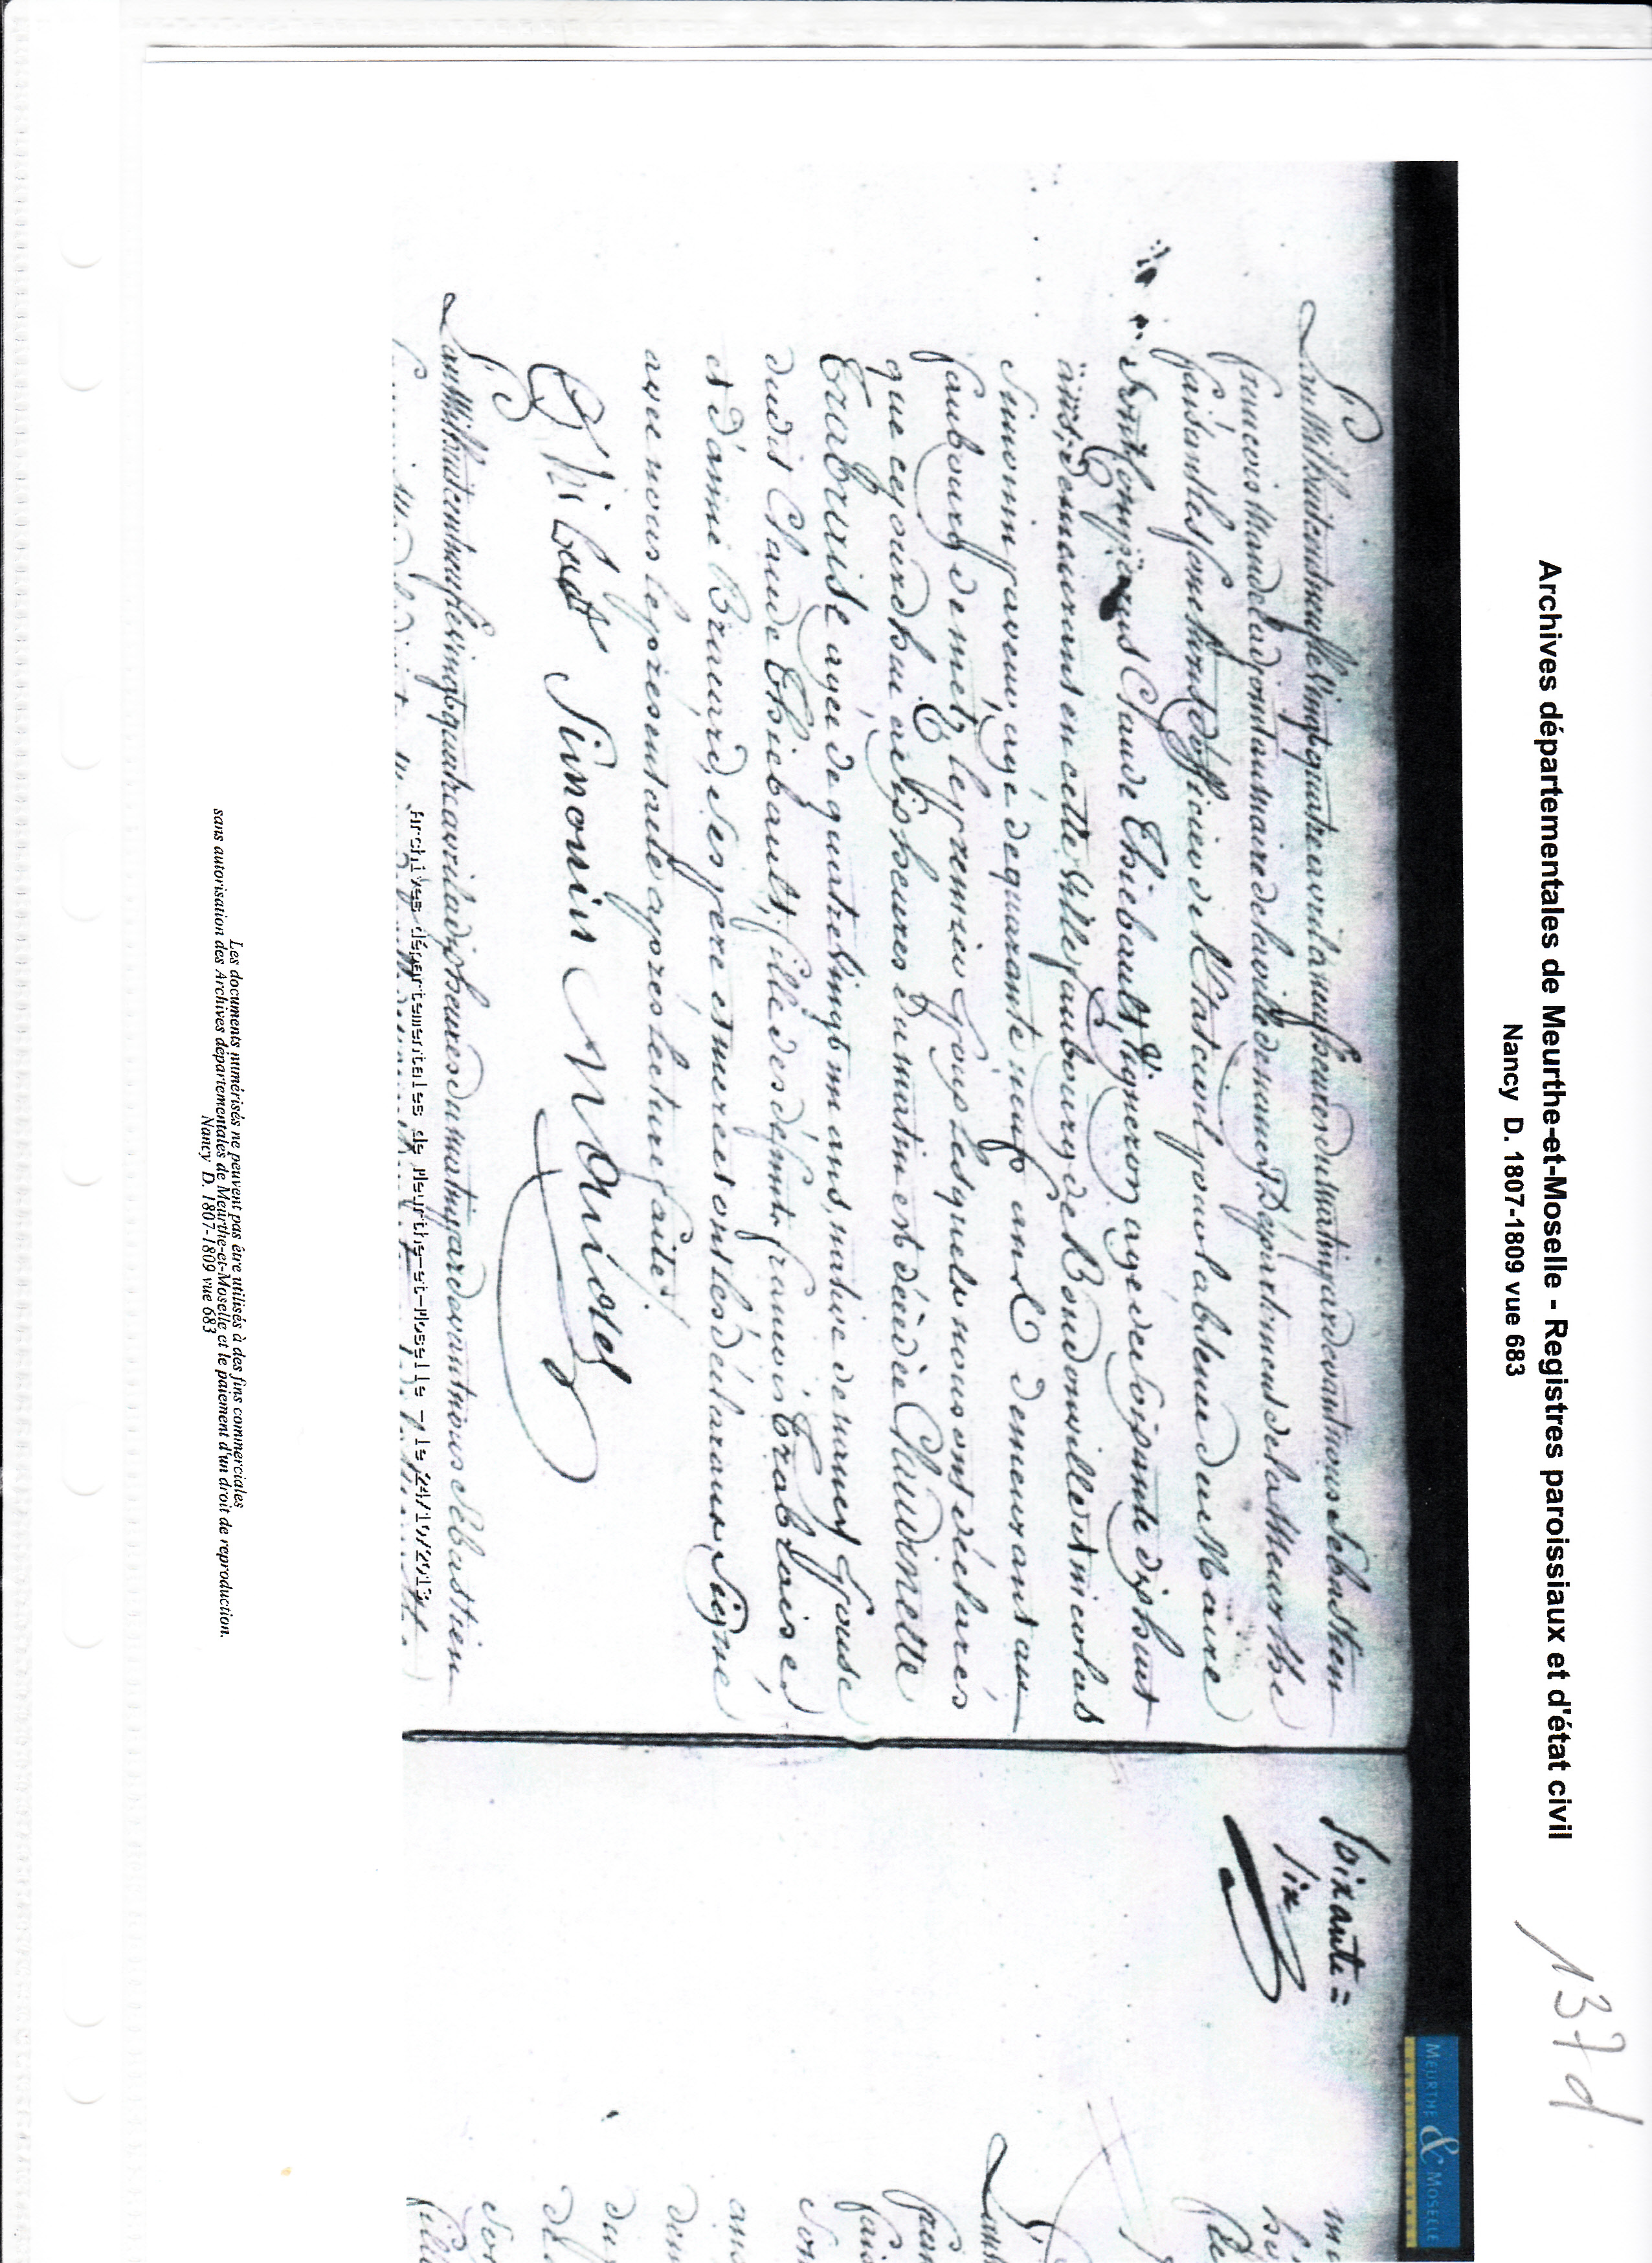 Archives départementales de Meurthe-et-Moselle - Registres paroissiaux et d'état civil
Nancy D. 1807-1809 vue 683
137d
MEURTHE & MOSELLE
Soixante=
six
L'an Mil huit cent neuf le vingt quatre avril a neuf heures du matin pardevant nous Sebastien
francois Mandel adjoint au maire de la ville de nancy Département de la Meurthe
faisant les fonctions d'officier de l'Etat civil pour l'absence du Maire
sont comparus Claude Thiebault Vigneron agé de Soixante dix huit
ans, demeurant en cette Ville faubourg de Boudonville et nicolas
Simonin paveur, agé de quarante neuf ans demeurant au
faubourg de metz le premier Epoux lesquels nous ont déclarés
que cejourd'huy a six heures du matin est décédée Claudinette
Trabraise agee de quatre Vingt un ans, native de nancy Epouse
dudit Claude Thiebault, fille des défunts francois Trabraise
et d'anne Bravard, ses pere et mere et ont les déclarans, Signé
avec nous le présent acte après lecture faite
Thibaut Simonin Mandel
L'an Mil huit cent neuf le vingt quatre avril a dix heures du matin pardevant nous Sebastien
Archives départementales de Meurthe-et-Moselle
Les documents numérisés ne peuvent pas être utilisés à des fins commerciales
sans autorisation des Archives départementales de Meurthe-et-Moselle et le paiement d'un droit de reproduction.
Nancy D. 1807-1809 vue 683